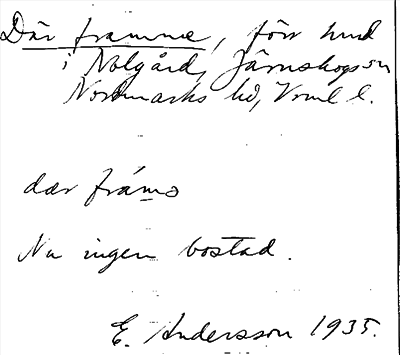 Där framme, förr hmd
i Nolgård, Järnskogs sn
Nordmarks hd, Vrml l.
dær frámə
Nu ingen bostad.
E. Andersson 1935.